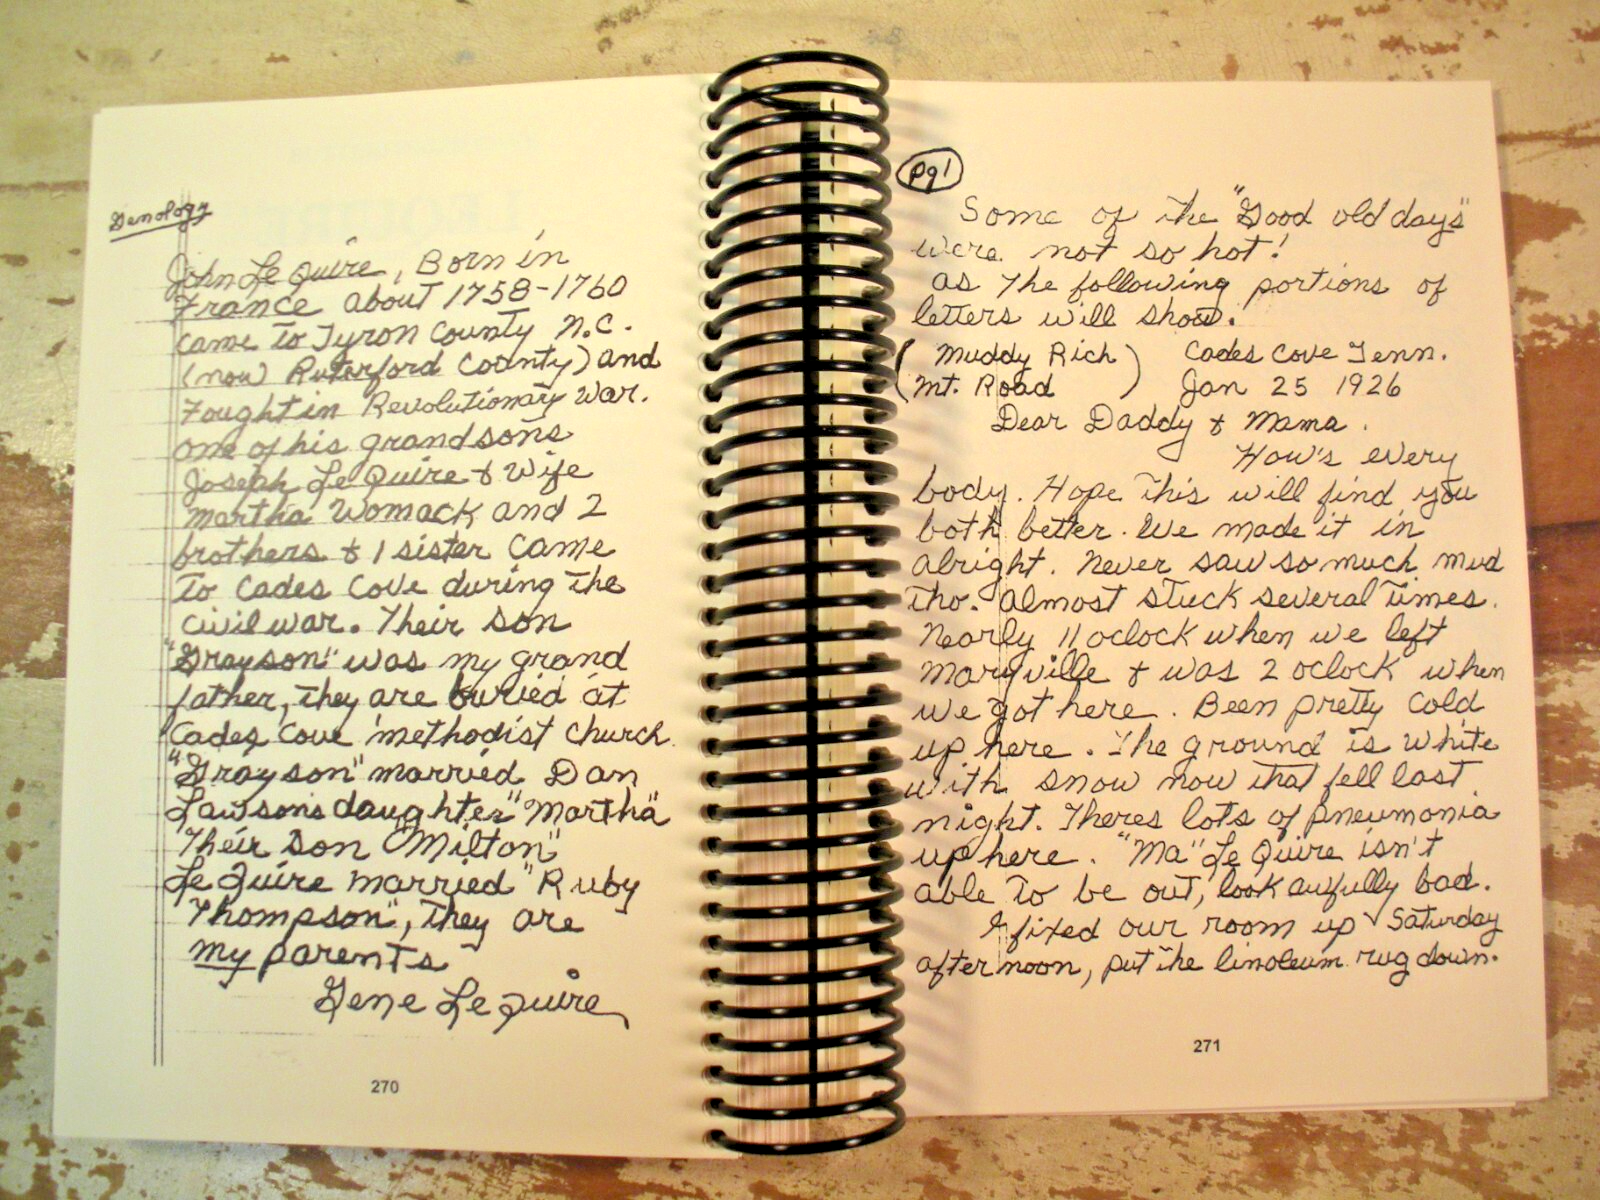 Genology
John Le Quire, Born in
France about 1758-1760
came to Tyron County N.C.
(now Ruterford County) and
Fought in Revolutionary War.
one of his grandsons
Joseph Le Quire & wife
Martha Womack and 2
brothers & 1 sister came
To Cades Cove during the
civil war. Their son
"Grayson" was my grand
father, They are buried at
Cades Cove methodist church.
"Grayson" married Dan
Lawsons daughter "Martha"
Their son "Milton"
Le Quire married "Ruby
Thompson", They are
my parents
Gene Le Quire
270
Pg 1
Some of the "Good old days"
were not so hot!
as The following portions of
letters will show.
(Muddy Rich) Cades Cove Tenn.
(Mt. Road) Jan 25 1926
Dear Daddy & Mama.
How's every
body. Hope this will find you
both better. We made it in
alright. Never saw so much mud
tho. Almost stuck several times.
Nearly 11 oclock when we left
Maryville & was 2 oclock when
we got here. Been pretty cold
up here. The ground is white
with snow now that fell last
night. Theres lots of pneumonia
up here. "Ma" Le Quire isn't
able to be out, look awfully bad.
I fixed our room up Saturday
afternoon, put the linoleum rug down.
271